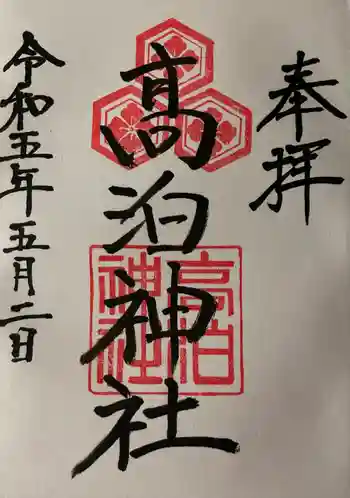 奉拝
高泊神社
高泊神社
令和五年五月二日